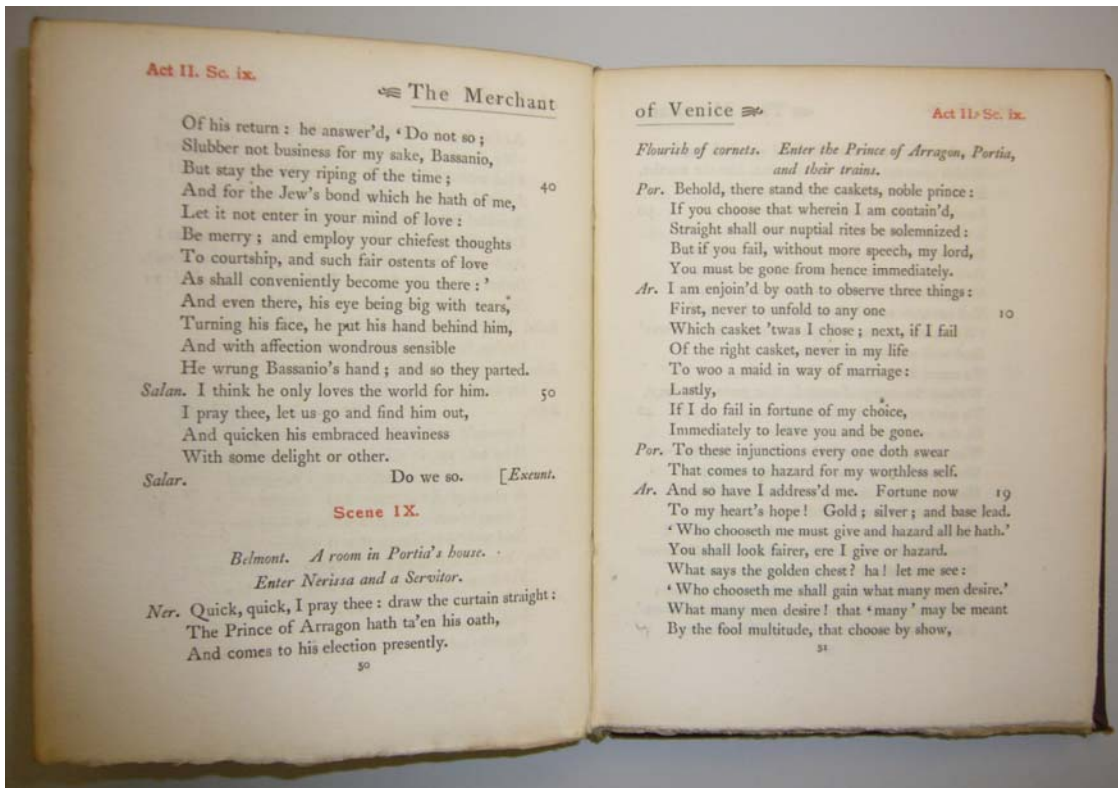 Act II. Sc. ix.
The Merchant
Of his return : he answer'd, ‘ Do not so ;
Slubber not business for my sake, Bassanio,
But stay the very riping of the time ;
And for the Jew's bond which he hath of me, 40
Let it not enter in your mind of love :
Be merry ; and employ your chiefest thoughts
To courtship, and such fair ostents of love
As shall conveniently become you there : ’
And even there, his eye being big with tears,
Turning his face, he put his hand behind him,
And with affection wondrous sensible
He wrung Bassanio's hand ; and so they parted.
Salan. I think he only loves the world for him. 50
I pray thee, let us go and find him out,
And quicken his embraced heaviness
With some delight or other.
Salar. Do we so. [Exeunt.
Scene IX.
Belmont. A room in Portia's house.
Enter Nerissa and a Servitor.
Ner. Quick, quick, I pray thee : draw the curtain straight :
The Prince of Arragon hath ta'en his oath,
And comes to his election presently.
50
of Venice
Act II. Sc. ix.
Flourish of cornets. Enter the Prince of Arragon, Portia,
and their trains.
Por. Behold, there stand the caskets, noble prince :
If you choose that wherein I am contain'd,
Straight shall our nuptial rites be solemnized :
But if you fail, without more speech, my lord,
You must be gone from hence immediately.
Ar. I am enjoin'd by oath to observe three things :
First, never to unfold to any one 10
Which casket 'twas I chose ; next, if I fail
Of the right casket, never in my life
To woo a maid in way of marriage :
Lastly,
If I do fail in fortune of my choice,
Immediately to leave you and be gone.
Por. To these injunctions every one doth swear
That comes to hazard for my worthless self.
Ar. And so have I address'd me. Fortune now 19
To my heart's hope ! Gold ; silver ; and base lead.
‘ Who chooseth me must give and hazard all he hath.’
You shall look fairer, ere I give or hazard.
What says the golden chest? ha! let me see :
‘ Who chooseth me shall gain what many men desire.’
What many men desire ! that ‘ many ’ may be meant
By the fool multitude, that choose by show,
51